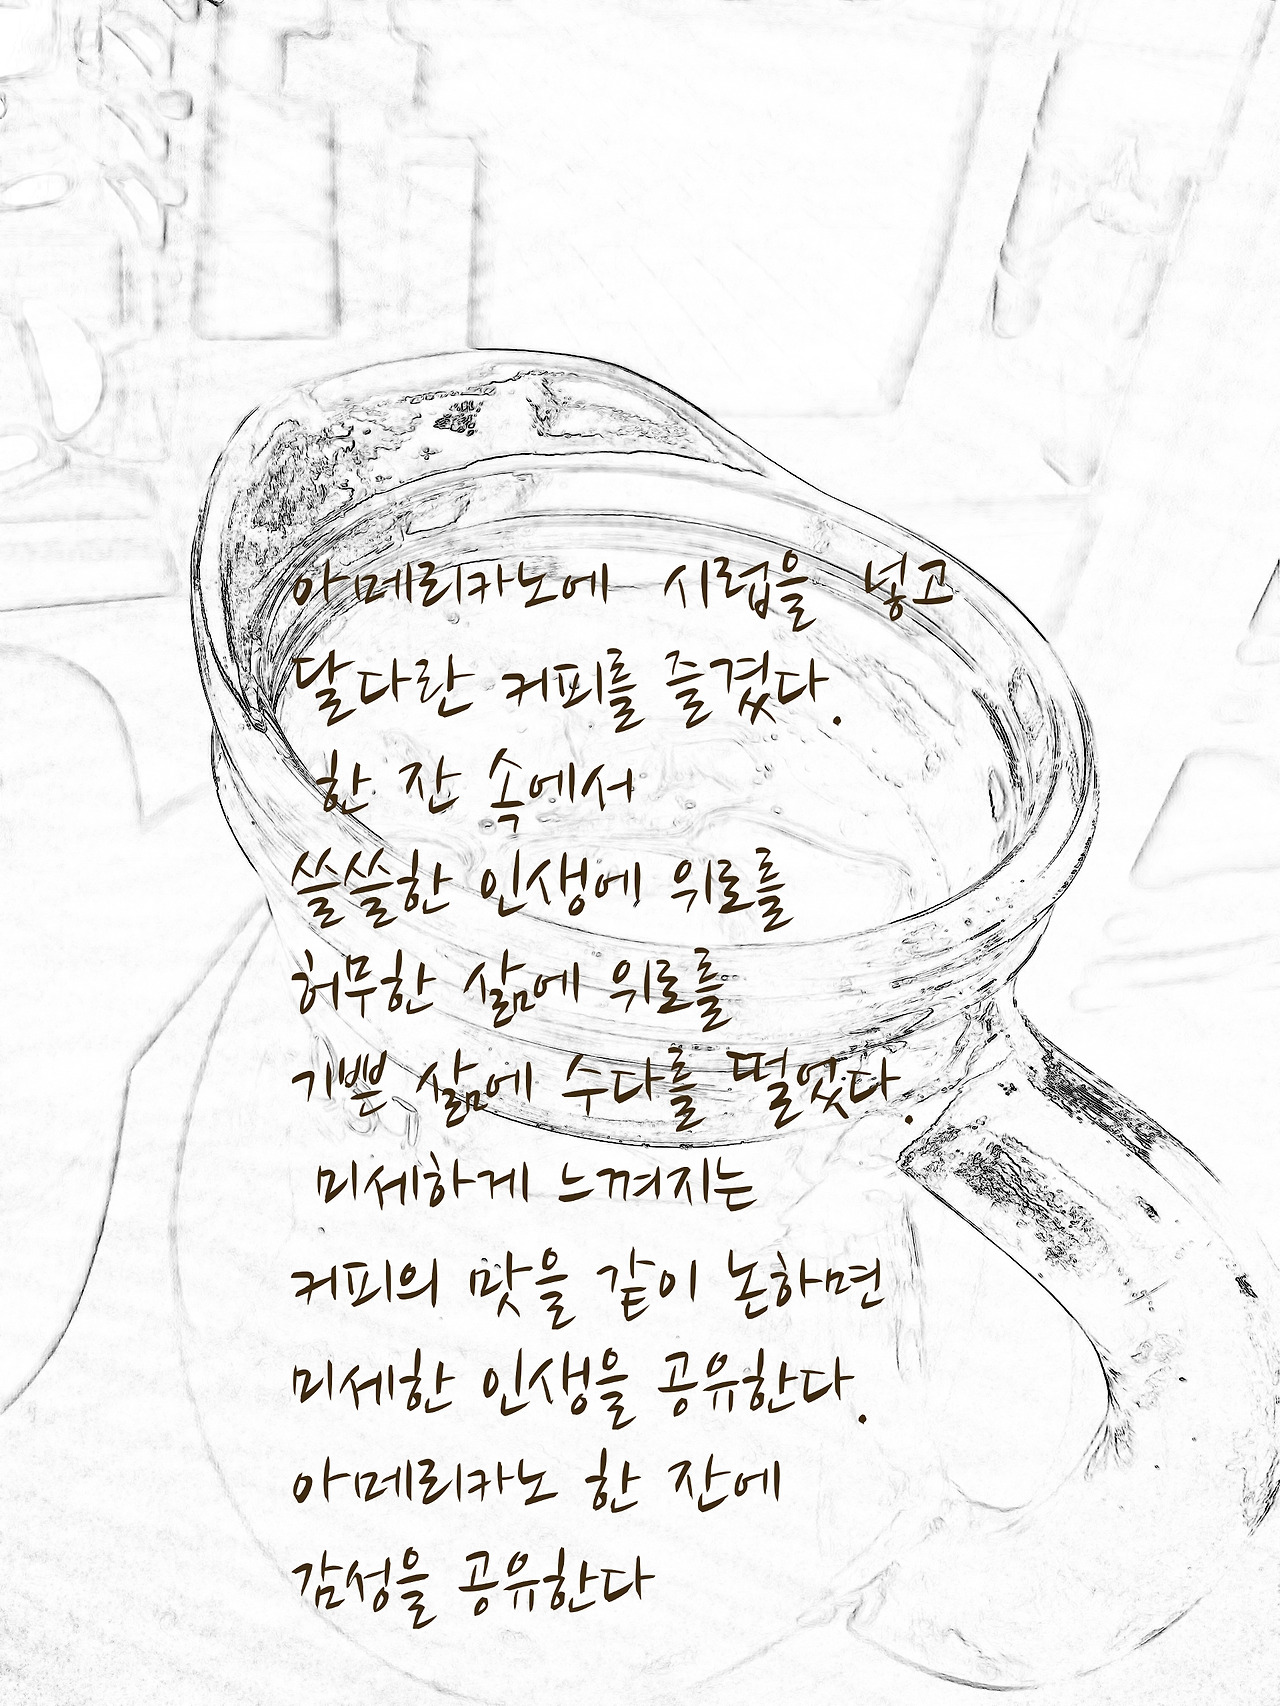 아메리카노에 시럽을 넣고
달다란 커피를 즐겼다.
한 잔 속에서
쓸쓸한 인생에 위로를
허무한 삶에 위로를
기쁜 삶에 수다를 떨었다.
미세하게 느껴지는
커피의 맛을 같이 논하면
미세한 인생을 공유한다.
아메리카노 한 잔에
감성을 공유한다